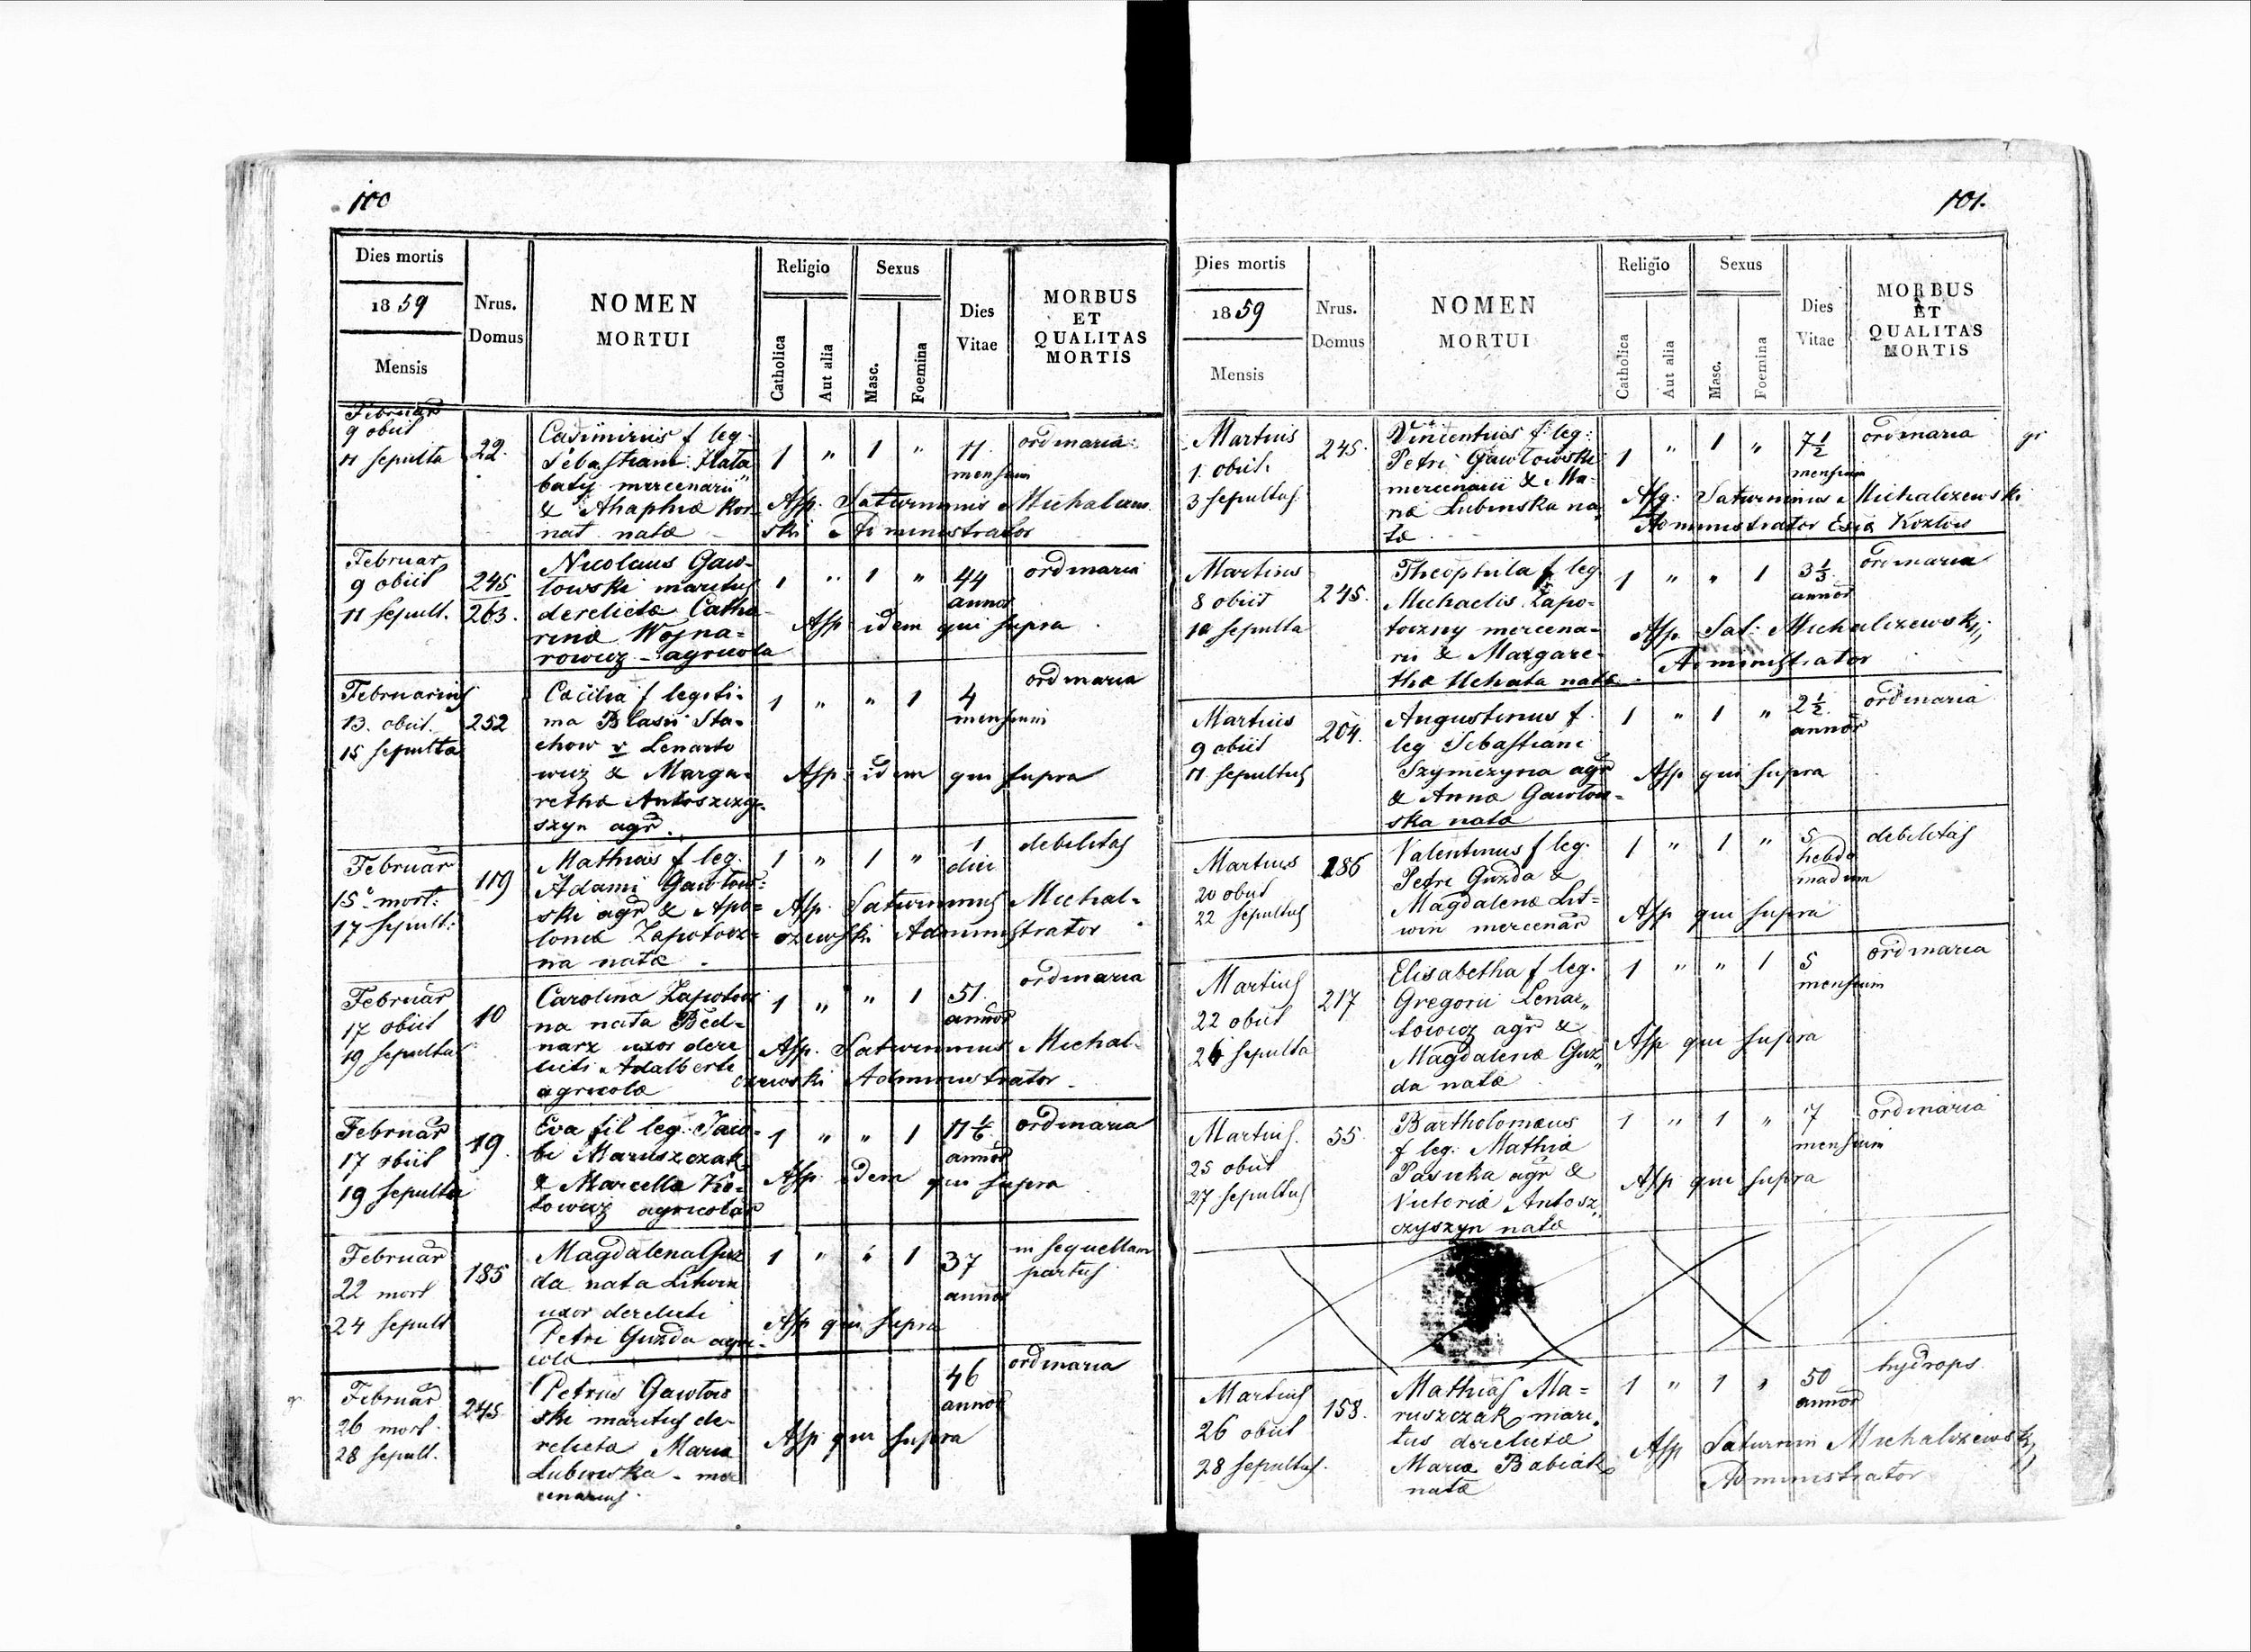 100
Dies mortis
1859
Mensis
Nrus.
Domus
NOMEN
MORTUI
Religio
Catholica
Aut alia
Sexus
Masc.
Foemina
Dies
Vitae
MORBUS
ET
QUALITAS
MORTIS
Februar
9 obiit
11 sepulta
22.
Casimirus f leg.
Sebastiani
mercenarii
& Ahaphiæ Kor
nat natæ
1 " 1 "
11.
mensium
ordinaria
Asp. Saturninus Michalczew
ski Administrator
Februar
9 obiit
11 sepult.
245
263.
Nicolaus Gaw-
lowski maritus
derelictæ Catha
rinæ Wojna=
rowicz - agricola
1 " 1 "
44
annor
ordinaria
Asp idem qui supra
Februarius
13. obiit.
15 sepulta
252
Cæcilia f legiti-
ma Blasii Sta-
chow v Lenarto
wicz & Marga-
rethæ Antoszczy-
szyn agr.
1 " " 1
4
mensium
ordinaria
Asp. idem qui supra
Februar
15 mort:
17 sepult:
119
Mathias f leg.
Adami Gawlow=
ski agr & Apo=
loniæ Zapotocz=
na natæ
1 " 1 "
1
diei
debilitas
Asp. Saturninus Michal-
czewski Administrator
Februar
17 obiit
19 sepulta
10
Carolina Zapotocz
na nata Bed=
narz uxor dere
licti Adalberti
agricolæ
1 " " 1
51.
annor
ordinaria
Asp. Saturninus Michal-
czewski Administrator
Februar
17 obiit
19 sepulta
19.
Eva fil leg. Jaco-
bi Maruszczak
& Marcellæ Ko-
towicz agricolar
1 " " 1
11 1/6
annor
ordinaria
Asp idem qui supra
Februar
22 mort
24 sepult
185
Magdalena Guz
da nata Litwin
uxor derelicti
Petri Guzda agri-
colæ
1 " " 1
37
annor
in sequellam
partus
Asp qui supra
Februar
26 mort.
28 sepult.
245
Petrus Gawlow
ski maritus de-
relicta Maria
Lubinska - mer
cenarius.
46
annor
ordinaria
Asp qui supra
101.
Dies mortis
1859
Mensis
Nrus.
Domus
NOMEN
MORTUI
Religio
Catholica
Aut alia
Sexus
Masc.
Foemina
Dies
Vitae
MORBUS
ET
QUALITAS
MORTIS
Martius
1. obiit.
3 sepultus
245.
Vincentius f leg:
Petri Gawlowski
mercenarii & Ma-
riæ Lubinska na
tæ
1 " 1 "
7 1/2
mensium
ordinaria
gr
Saturninus Michalczewski
Administrator Kozlow
Martius
8 obiit
10 sepulta
245.
Theophila f leg
Michaelis Zapo-
toczny mercena-
rii & Margare-
thæ Uchata natæ
1 " " 1
3 1/3
annor
ordinaria
Asp Sat: Michalczewski
Administrator
Martius
9 obiit
11 sepultus
204.
Augustinus f.
leg Sebastiani
Szymczyna agr
& Annæ Gawlow-
ska natæ
1 " 1 "
2 1/2.
annor
ordinaria
Asp qui supra
Martius
20 obiit
22 sepultus
186
Valentinus f leg.
Petri Guzda &
Magdalenæ Lit=
win mercenar
1 " 1 "
5
hebdo
madum
debilitas
Asp qui supra
Martius
22 obiit
24 sepulta
217
Elisabetha f leg.
Gregorii Lenar„
towicz agr &
Magdalenæ Guz„
da natæ
1 " " 1
5
mensium
ordinaria
Asp qui supra
Martius.
25 obiit
27 sepultus
55.
Bartholomæus
f leg. Mathiæ
Pasieka agr &
Victoriæ Antosz„
czyszyn natæ
1 " 1 "
7
mensium
ordinaria
Asp qui supra
Martius
26 obiit
28 sepultus.
158.
Mathias Ma=
ruszczak mari.
tus derelictæ
Mariæ Babiak
natæ
1 " 1 "
50
annor
hydrops
Asp Saturnin Michalczewski
Administrator